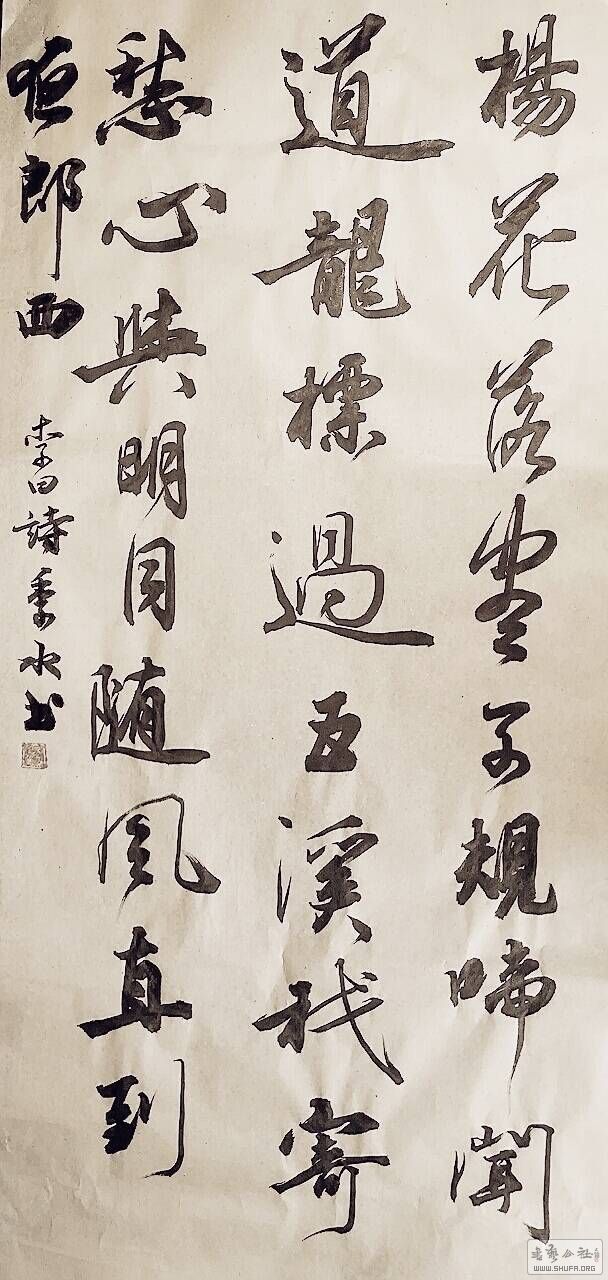 楊花落盡子規啼聞
道龍標過五溪我寄
愁心與明月随風直到
夜郎西
李白詩季水书
書藝公社
WWW.SHUFA.ORG